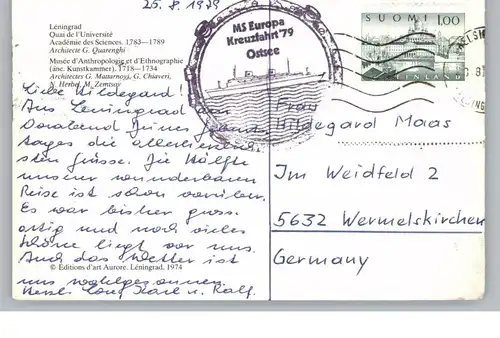 25. 8. 1979
Léningrad
Quai de l'Université
Académie des Sciences. 1783—1789
Architecte G. Quarenghi
Musée d'Anthropologie et d'Ethnographie
(anc. Kunstkammer). 1718—1734
Architectes G. Mattarnovi, G. Chiaveri,
N. Herbel, M. Zemtsov
MS Europa
Kreuzfahrt '79
Ostsee
SUOMI 1,00
FINLAND
Liebe Hildegard!
Aus Leningrad
Vorabend Deines
tages die allerherzlich
sten Grüsse. Die Hälfte
unserer wunderbaren
Reise ist schon vorüber.
Es war bisher gross-
artig und noch vieles
Schöne liegt vor uns.
Auch das Wetter ist
uns wohlgesonnen.
Herzl. Karl u. Ralf.
© Editions d'art Aurore. Léningrad. 1974
Frau
Hildegard Maas
Im Weidfeld 2
5632 Wermelskirchen
Germany